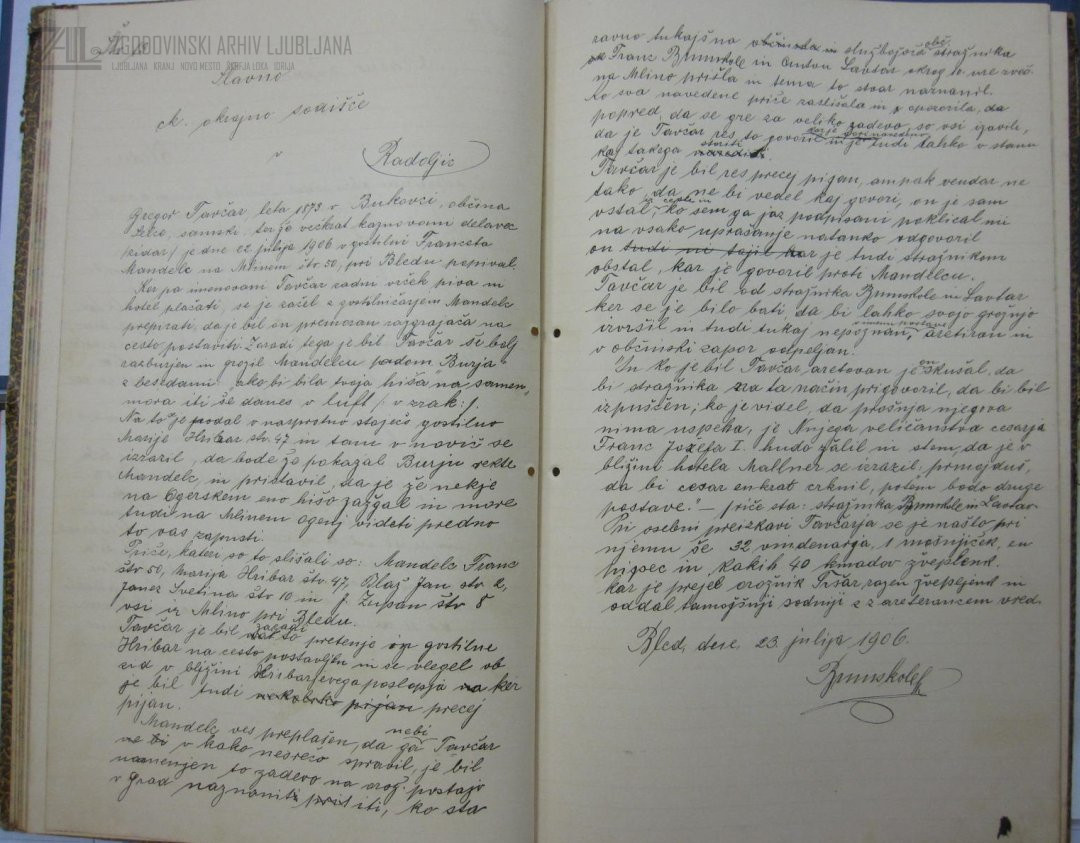 ZAL ZGODOVINSKI ARHIV LJUBLJANA
LJUBLJANA KRANJ NOVO MESTO ŠKOFJA LOKA IDRIJA
Slavno
ck. okrajno sodišče
v
Radoljic
Gregor Tavčar, leta 1873 v Bukovci, občina
samski, že večkrat kaznovani delavec
/zidar/ je dne 22 julija 1906 v gostilni Franceta
Mandelc na Mlinem štv 50, pri Bledu popival.
Ker pa imenovani Tavčar zadni vrček piva ni
hotel plačati, se je začel z gostilničarjem Mandelc
prepirati, da je bil on primoran razgrajača na
cesto postaviti. Zaradi tega je bil Tavčar še bolj
razburjen in grozil Mandelcu padom Burja
z besedami: ako bi bila tvoja hiša na samem,
mora iti še danes v luft /: v zrak :/.
Na to je podal v nasprotno stoječo gostilno
Marije Hribar štv 47 in tam v novič se
izrazil, da bode že pokazal Burju rekte
Mandelc, in pristavil, da je že nekje
na Ogerskem eno hišo zažgal in more
tudi na Mlinem ogenj videti predno
to vas zapusti.
Priče, kateri so to slišali so: Mandelc Franc
štv 50, Marija Hribar štv 47, Blaž Jan štv 2,
Janez Svetina štv 10 in J. Zupan štv 8
vsi iz Mlino pri Bledu.
Tavčar je bil zaradi to pretenje iz gostilne
Hribar na cesto postavljen in se vlegel ob
zid v bližini Hribarjevega poslopja na ker
je bil tudi nekoliko pijan precej
pijan.
Mandelc ves preplašen, da ga nebi Tavčar
ne bi v kako nesrečo spravil, je bil
namenjen to zadevo na orož. postajo
v Grad naznaniti priti iti, ko sta
ravno tukajšna službojoča obč. stražnika
Franc Brumskole in Anton Lavtar okrog 10 ure zveč.
na Mlino prišla in tema to stvar naznanil.
Ko sva navedene priče zaslišala in opozorila, da
popred, da se gre za veliko zadevo, so vsi izjavili,
da je Tavčar res to govoril kar je gori navedeno in je tudi lahko v stanu
kaj takega storiti narediti.
Tavčar je bil res precej pijan, ampak vendar ne
tako, da ne bi vedel kaj govori, on je sam
vstal, iz ceste in ko sem ga jaz podpisani poklical mi
na vsako uprašanje natanko odgovoril
on tudi ni tajil kar je tudi stražnikom
obstal, kar je govoril proti Mandelcu.
Tavčar je bil od stražnika Brumskole in Lavtar
ker se je bilo bati, da bi lahko svojo grožnjo
izvršil in tudi tukaj nepoznan, aretiran in
v občinski zapor odpeljan.
In ko je bil Tavčar aretovan je on skušal, da
bi stražnika na ta način prigovoril, da bi bil
izpuščen; ko je videl, da prošnja njegova
nima uspeha, je Njega veličanstva cesarja
Franc Jožefa I. hudo žalil in stem, da je v
bližini hotela Mallner se izrazil, prmojduš,
da bi cesar enkrat crknil, potem bodo druge
postave." – Priče sta: stražnika Brumskole in Lavtar.
Pri osebni preizkavi Tavčarja se je našlo pri
njemu še 32 vindenarja, 1 mošnjiček, en
in kakih 40 komadov žveplenk.
kar je prejel orožnik Tršar, razen žvepljenk in
oddal tamojšnji sodniji z z areterancem vred.
Bled, dne, 23. julija 1906.
Brumskole